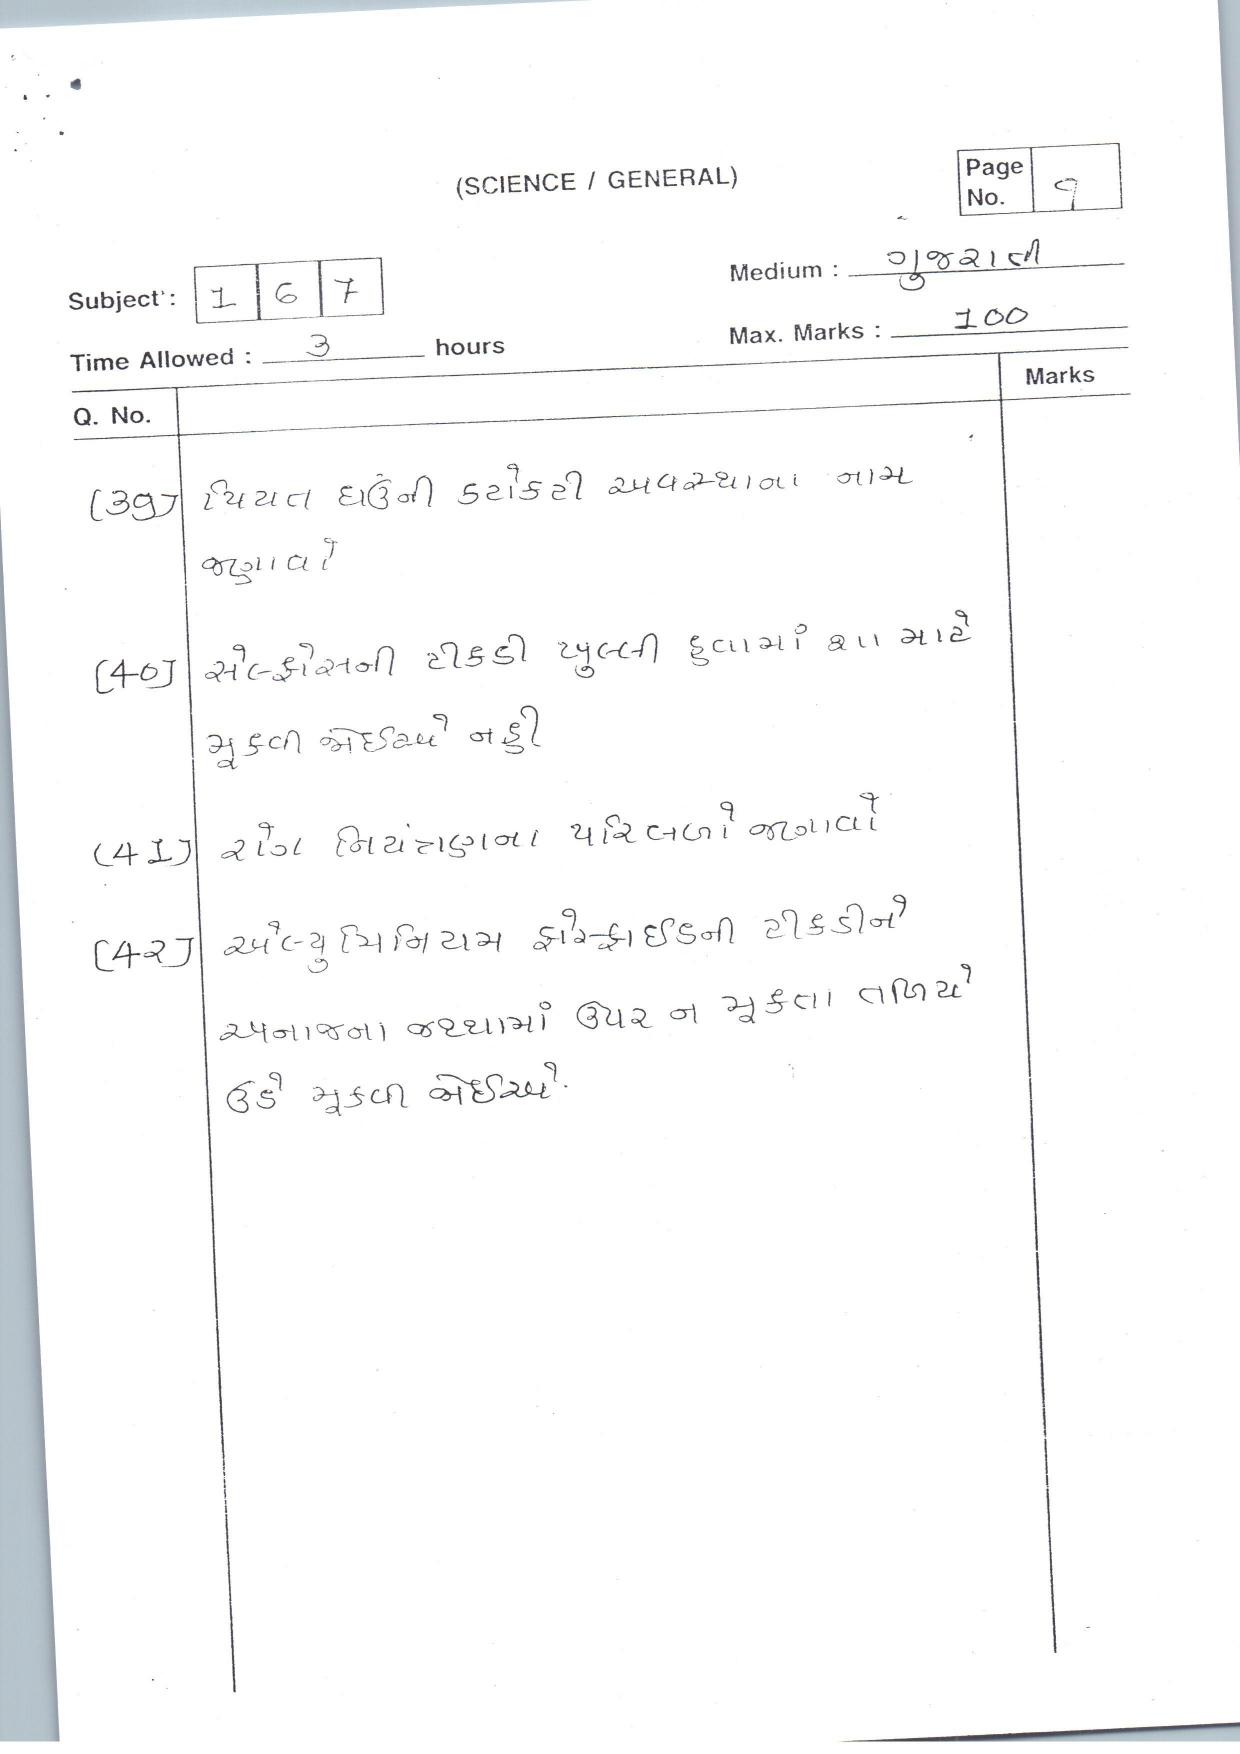 (SCIENCE / GENERAL)
Page No. 9
Subject : 1 6 7
Medium : ગુજરાતી
Time Allowed : 3 hours
Max. Marks : 100
Q. No.
Marks
(39) પિયત ઘઉંની કટોકટી અવસ્થાના નામ
જણાવો
(40) સેલ્ફોસની ટીકડી ખુલ્લી હવામાં શા માટે
મૂકવી જોઈએ નહી
(41) રોગ નિયંત્રણના પરિબળો જણાવો
(42) એલ્યુમિનિયમ ફોસ્ફાઈડની ટીકડીને
અનાજના જથ્થામાં ઉપર ન મૂકતા તળિયે
ઉંડે મૂકવી જોઈએ.